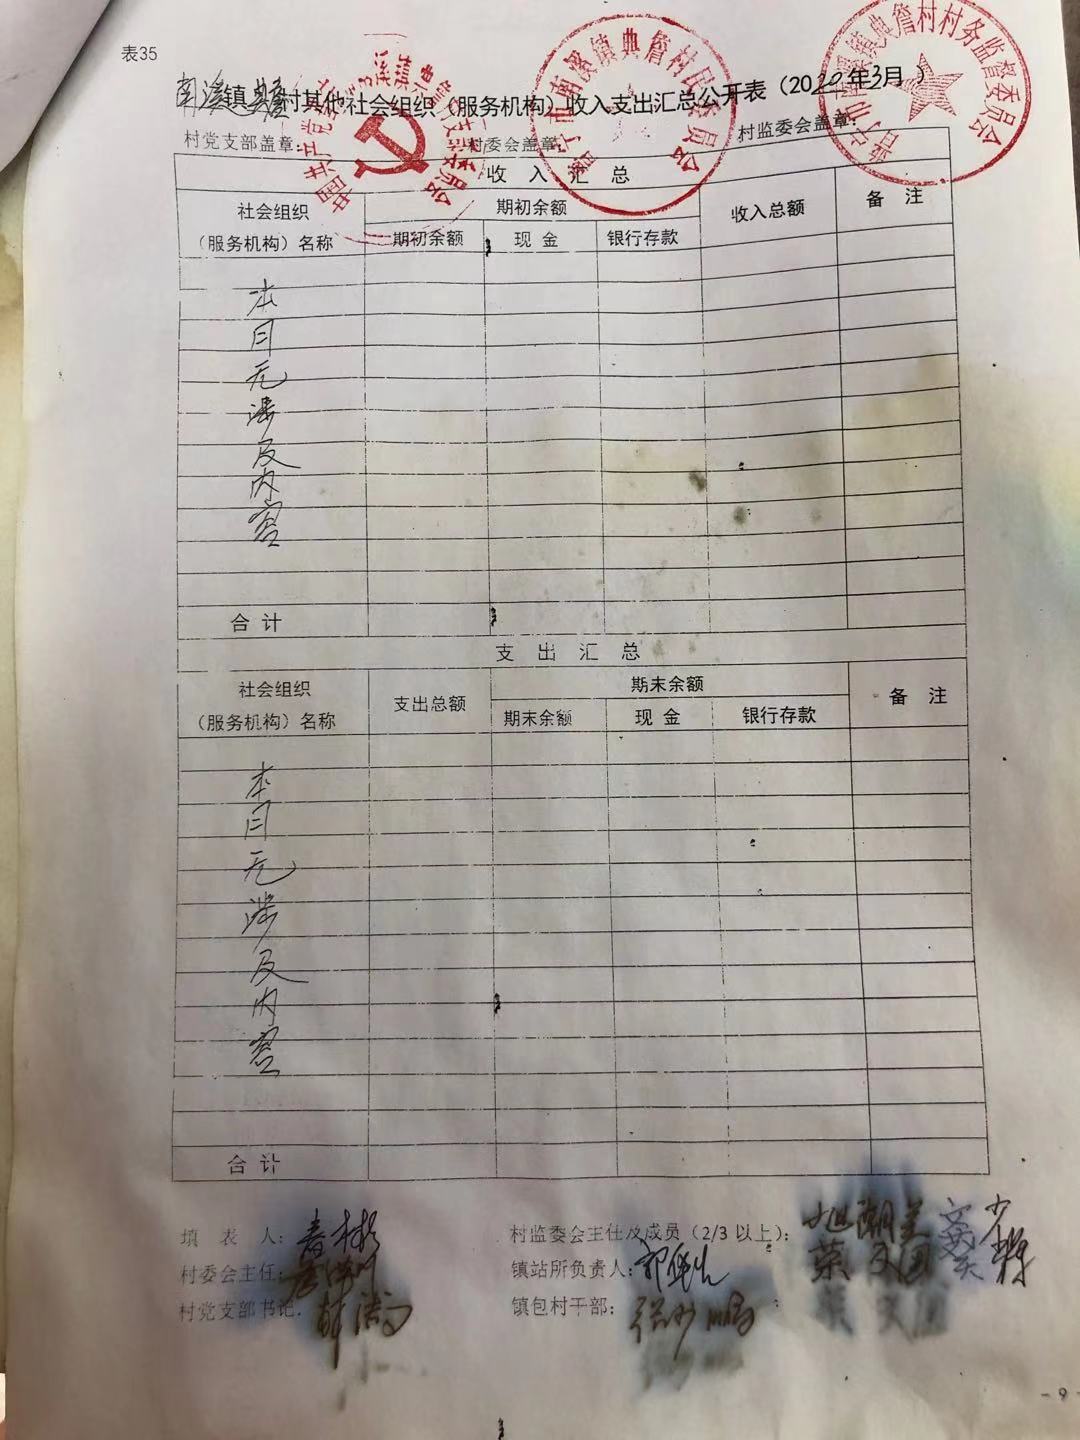 表35
南溪镇典詹村其他社会组织（服务机构）收入支出汇总公开表（2020年3月）
村党支部盖章： 村委会盖章： 村监委会盖章：
收 入 汇 总
社会组织（服务机构）名称 期初余额 收入总额 备 注
期初余额 现 金 银行存款
本月无涉及内容
合 计
支 出 汇 总
社会组织（服务机构）名称 支出总额 期末余额 备 注
期末余额 现 金 银行存款
本月无涉及内容
合 计
填 表 人： 村监委会主任及成员（2/3 以上）：
村委会主任： 镇站所负责人：
村党支部书记： 镇包村干部：
- 9 -